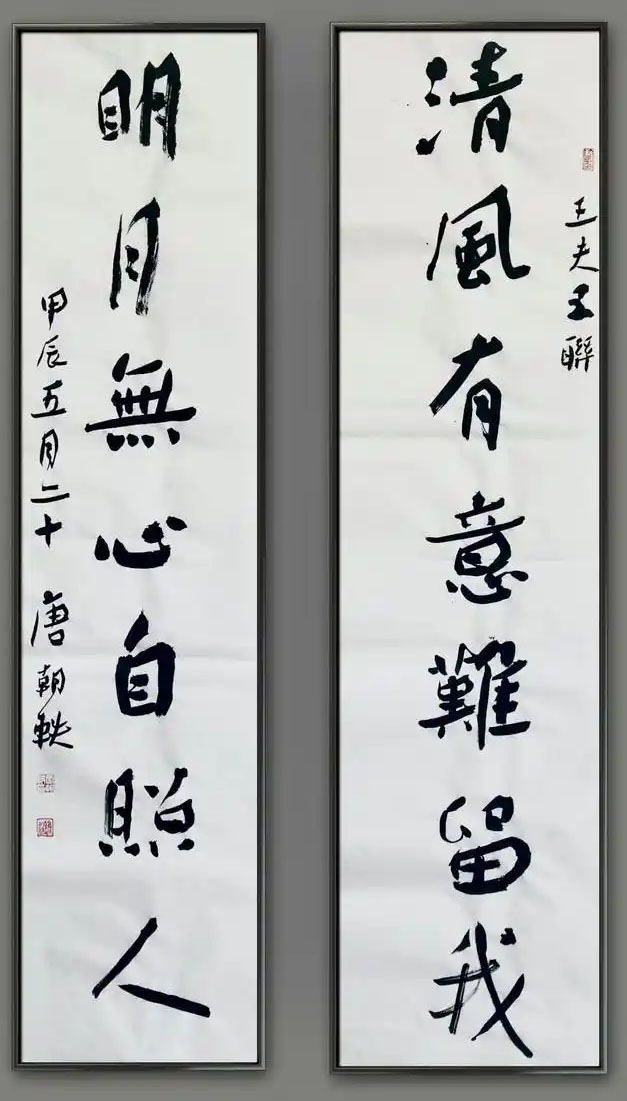 清風有意難留我
王夫子聯
明月無心自照人
甲辰五月二十 唐朝軼